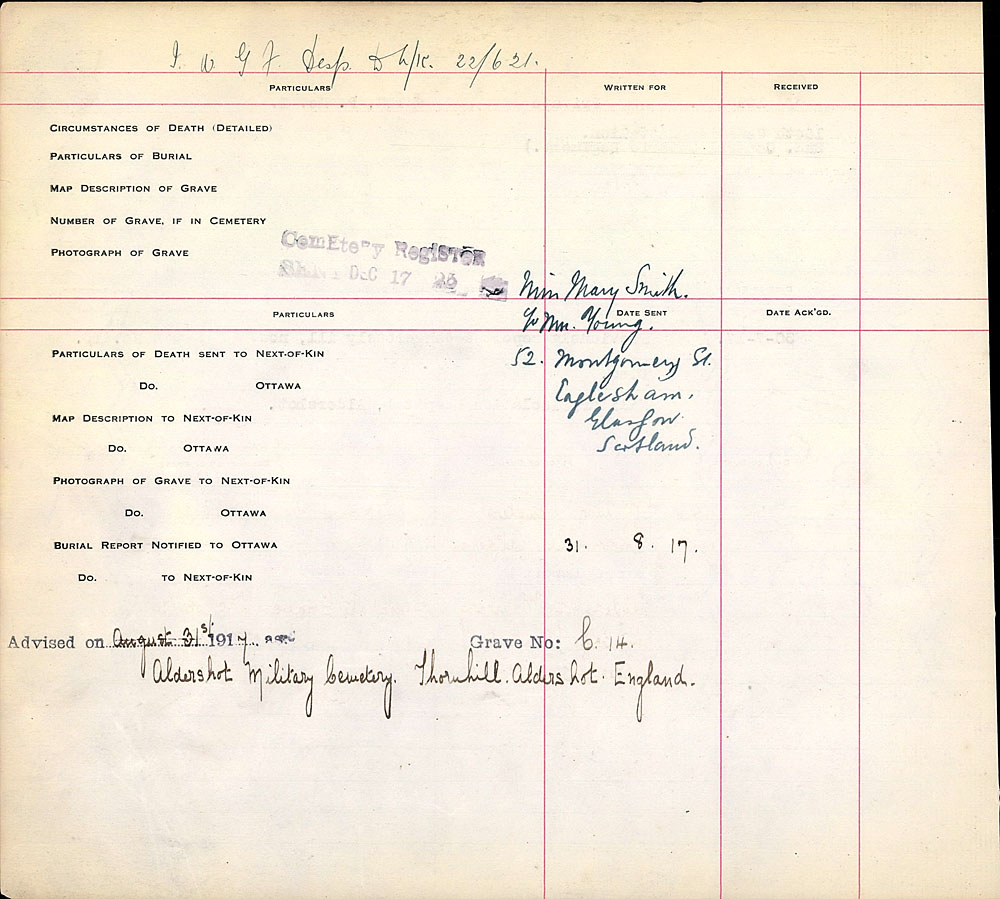 I. W G F. Desp. D L/R. 22/6 21.
PARTICULARS WRITTEN FOR RECEIVED
CIRCUMSTANCES OF DEATH (DETAILED)
PARTICULARS OF BURIAL
MAP DESCRIPTION OF GRAVE
NUMBER OF GRAVE, IF IN CEMETERY
PHOTOGRAPH OF GRAVE
Cemetery Register
DEC 17
Miss Mary Smith.
PARTICULARS DATE SENT DATE ACK'GD.
c/o Mrs. Young.
PARTICULARS OF DEATH SENT TO NEXT-OF-KIN
52. Montgomery St.
DO. OTTAWA
Eaglesham.
MAP DESCRIPTION TO NEXT-OF-KIN
Glasgow
DO. OTTAWA
Scotland.
PHOTOGRAPH OF GRAVE TO NEXT-OF-KIN
DO. OTTAWA
BURIAL REPORT NOTIFIED TO OTTAWA 31. 8. 17.
DO. TO NEXT-OF-KIN
Advised on August 31st 1917. Grave No: C. 14.
Aldershot Military Cemetery. Thornhill. Aldershot. England.